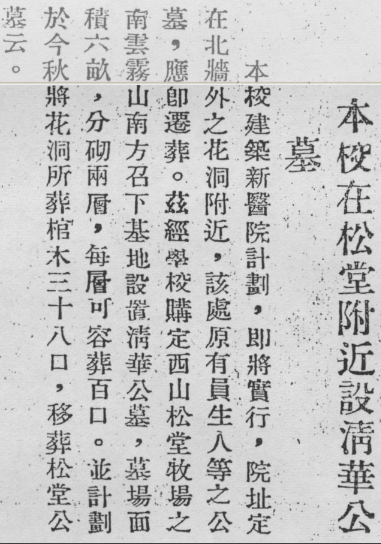 本校在松堂附近設淸華公
墓
本校建築新醫院計劃，即將實行，院址定
在北牆外之花洞附近，該處原有員生人等之公
墓，應卽遷葬。茲經學校購定西山松堂牧場之
南雲霧山南方召下基地設置淸華公墓，墓場面
積六畝，分砌兩層，每層可容葬百口。並計劃
於今秋將花洞所葬棺木三十八口，移葬松堂公
墓云。